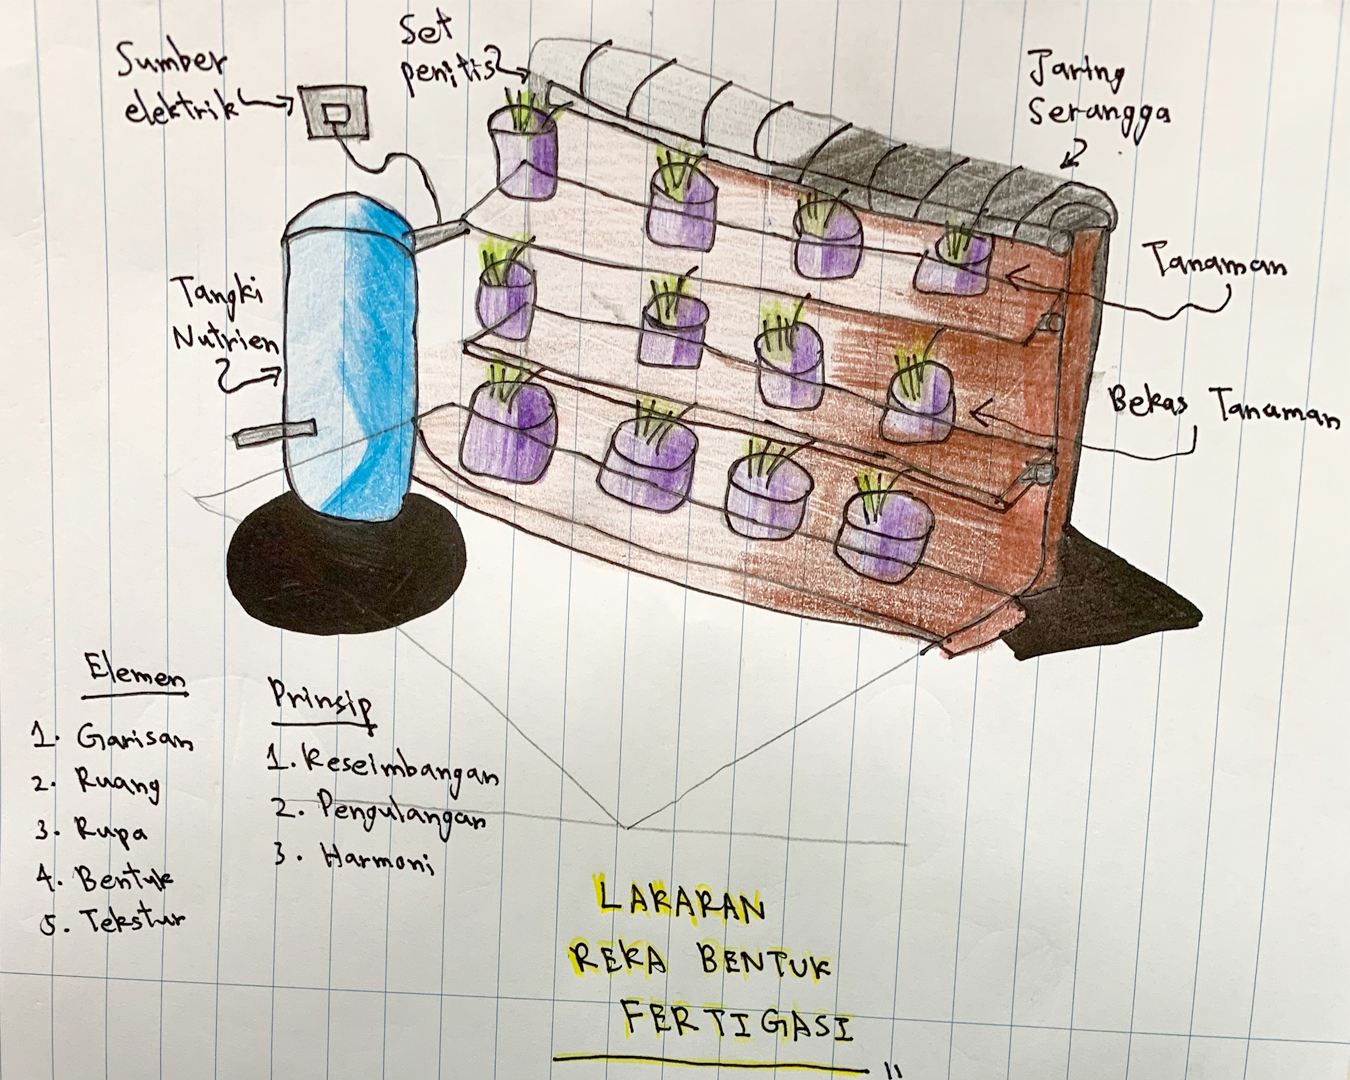 Sumber
elektrik
Set
penitis
Jaring
Serangga
Tanaman
Tangki
Nutrien
Bekas Tanaman
Elemen
1. Garisan
2. Ruang
3. Rupa
4. Bentuk
5. Tekstur
Prinsip
1. Keseimbangan
2. Pengulangan
3. Harmoni
LAKARAN
REKA BENTUK
FERTIGASI